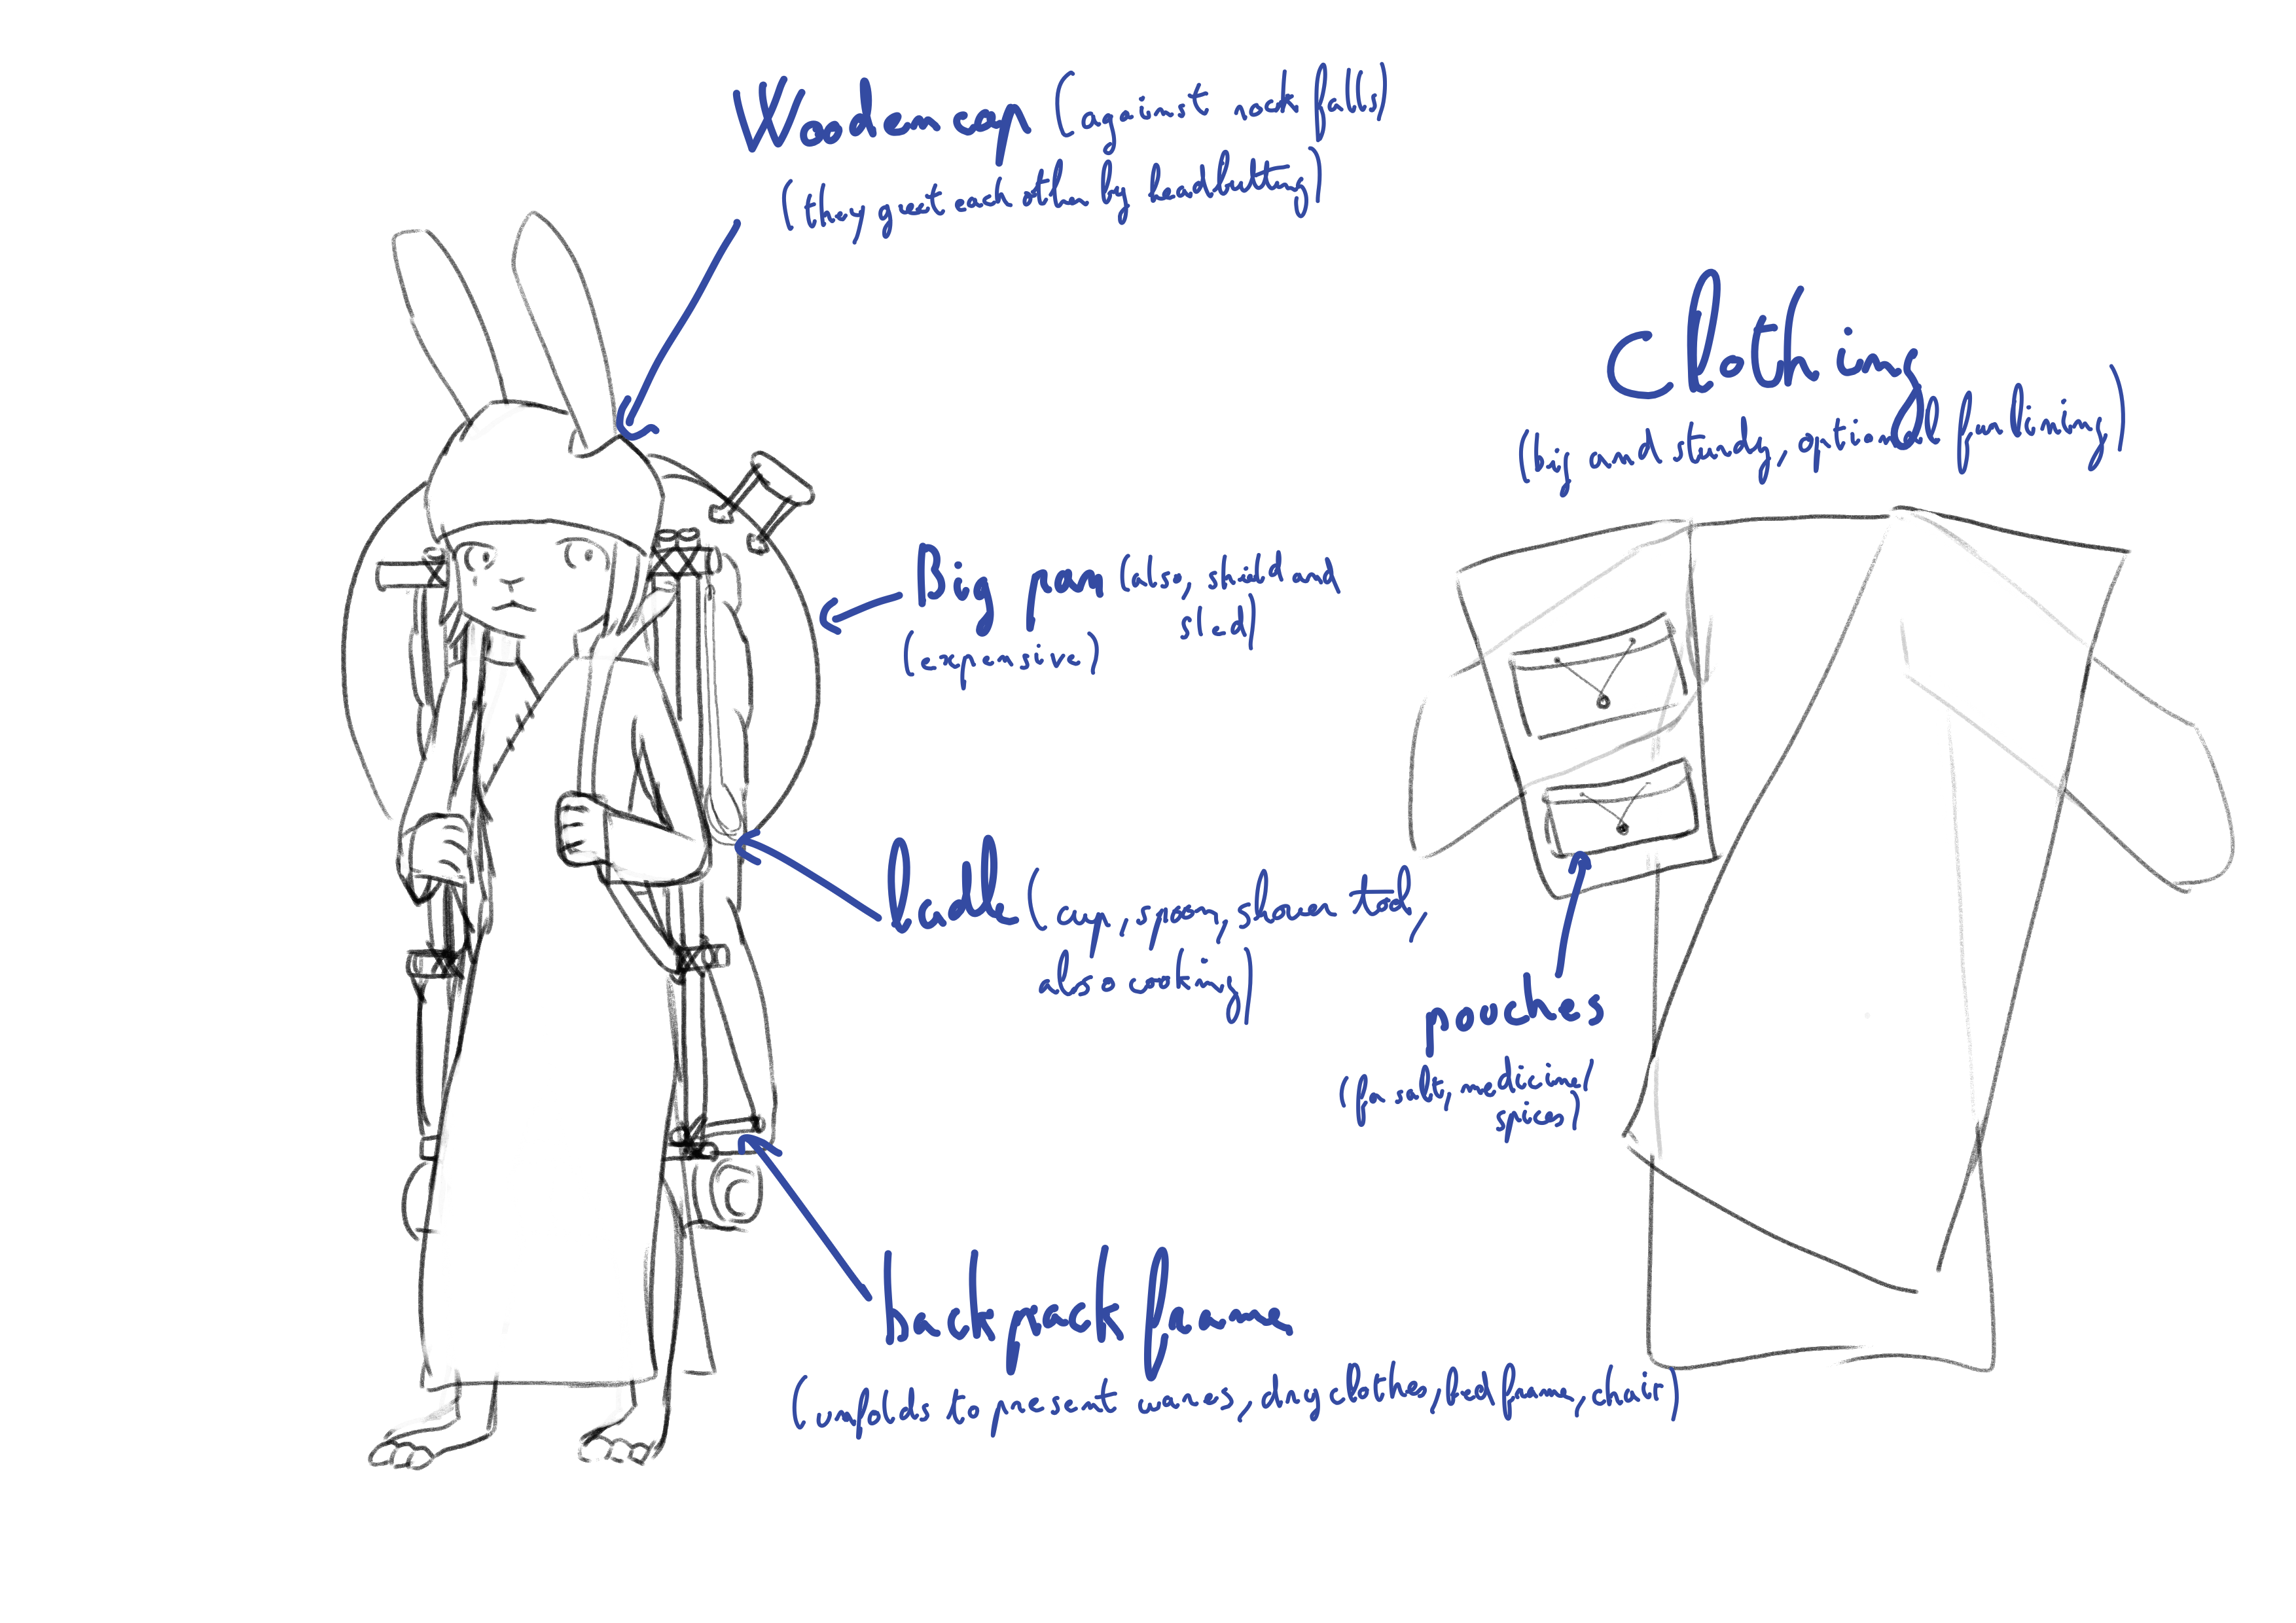 Wooden cap (against rock falls)
(they greet each other by headbutting)
Clothing
(big and sturdy, optional fur lining)
Big pan (also, shield and
sled)
(expensive)
ladle (cup, spoon, shower tool,
also cooking)
pouches
(for salt, medicine/
spices)
backpack frame
(unfolds to present wares, dry clothes, bed frame, chair)